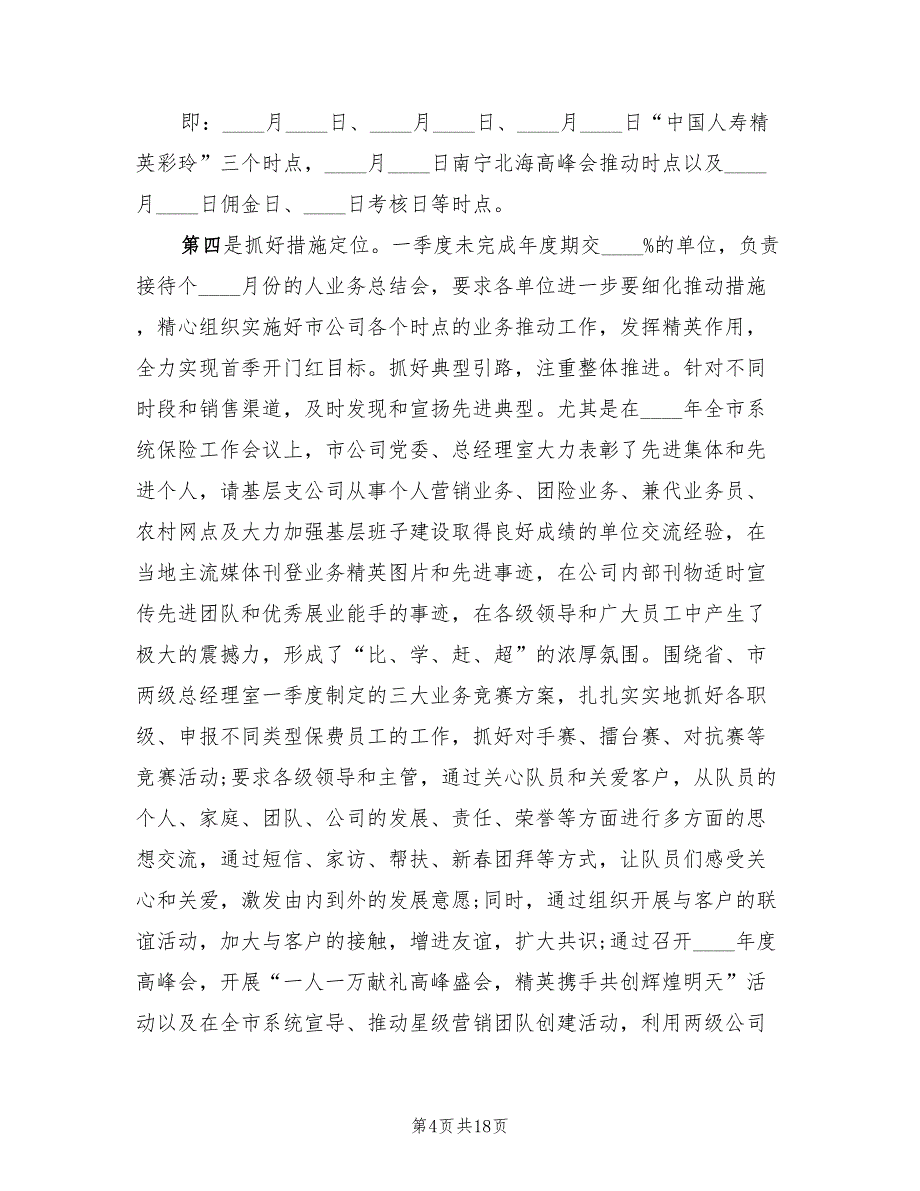 即：____月____日、____月____日、____月____日“中国人寿精
英彩玲”三个时点，____月____日南宁北海高峰会推动时点以及____
月____日佣金日、____日考核日等时点。
第四是抓好措施定位。一季度未完成年度期交____%的单位，负责
接待个____月份的人业务总结会，要求各单位进一步要细化推动措施
，精心组织实施好市公司各个时点的业务推动工作，发挥精英作用，
全力实现首季开门红目标。抓好典型引路，注重整体推进。针对不同
时段和销售渠道，及时发现和宣扬先进典型。尤其是在____年全市系
统保险工作会议上，市公司党委、总经理室大力表彰了先进集体和先
进个人，请基层支公司从事个人营销业务、团险业务、兼代业务员、
农村网点及大力加强基层班子建设取得良好成绩的单位交流经验，在
当地主流媒体刊登业务精英图片和先进事迹，在公司内部刊物适时宣
传先进团队和优秀展业能手的事迹，在各级领导和广大员工中产生了
极大的震撼力，形成了“比、学、赶、超”的浓厚氛围。围绕省、市
两级总经理室一季度制定的三大业务竞赛方案，扎扎实实地抓好各职
级、申报不同类型保费员工的工作，抓好对手赛、擂台赛、对抗赛等
竞赛活动;要求各级领导和主管，通过关心队员和关爱客户，从队员的
个人、家庭、团队、公司的发展、责任、荣誉等方面进行多方面的思
想交流，通过短信、家访、帮扶、新春团拜等方式，让队员们感受关
心和关爱，激发由内到外的发展意愿;同时，通过组织开展与客户的联
谊活动，加大与客户的接触，增进友谊，扩大共识;通过召开____年度
高峰会，开展“一人一万献礼高峰盛会，精英携手共创辉煌明天”活
动以及在全市系统宣导、推动星级营销团队创建活动，利用两级公司
第4页共18页